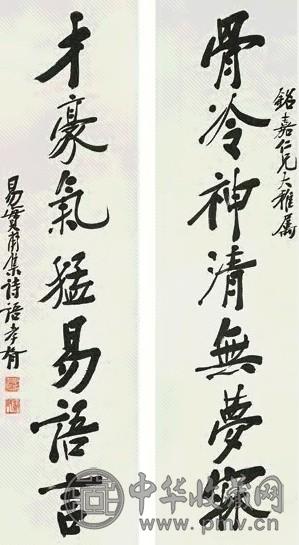 銘嘉仁兄大雅屬
骨冷神清無夢寐
才豪氣猛易語言
易實甫集詩語孝胥
中华收藏网
www.pmv.cn